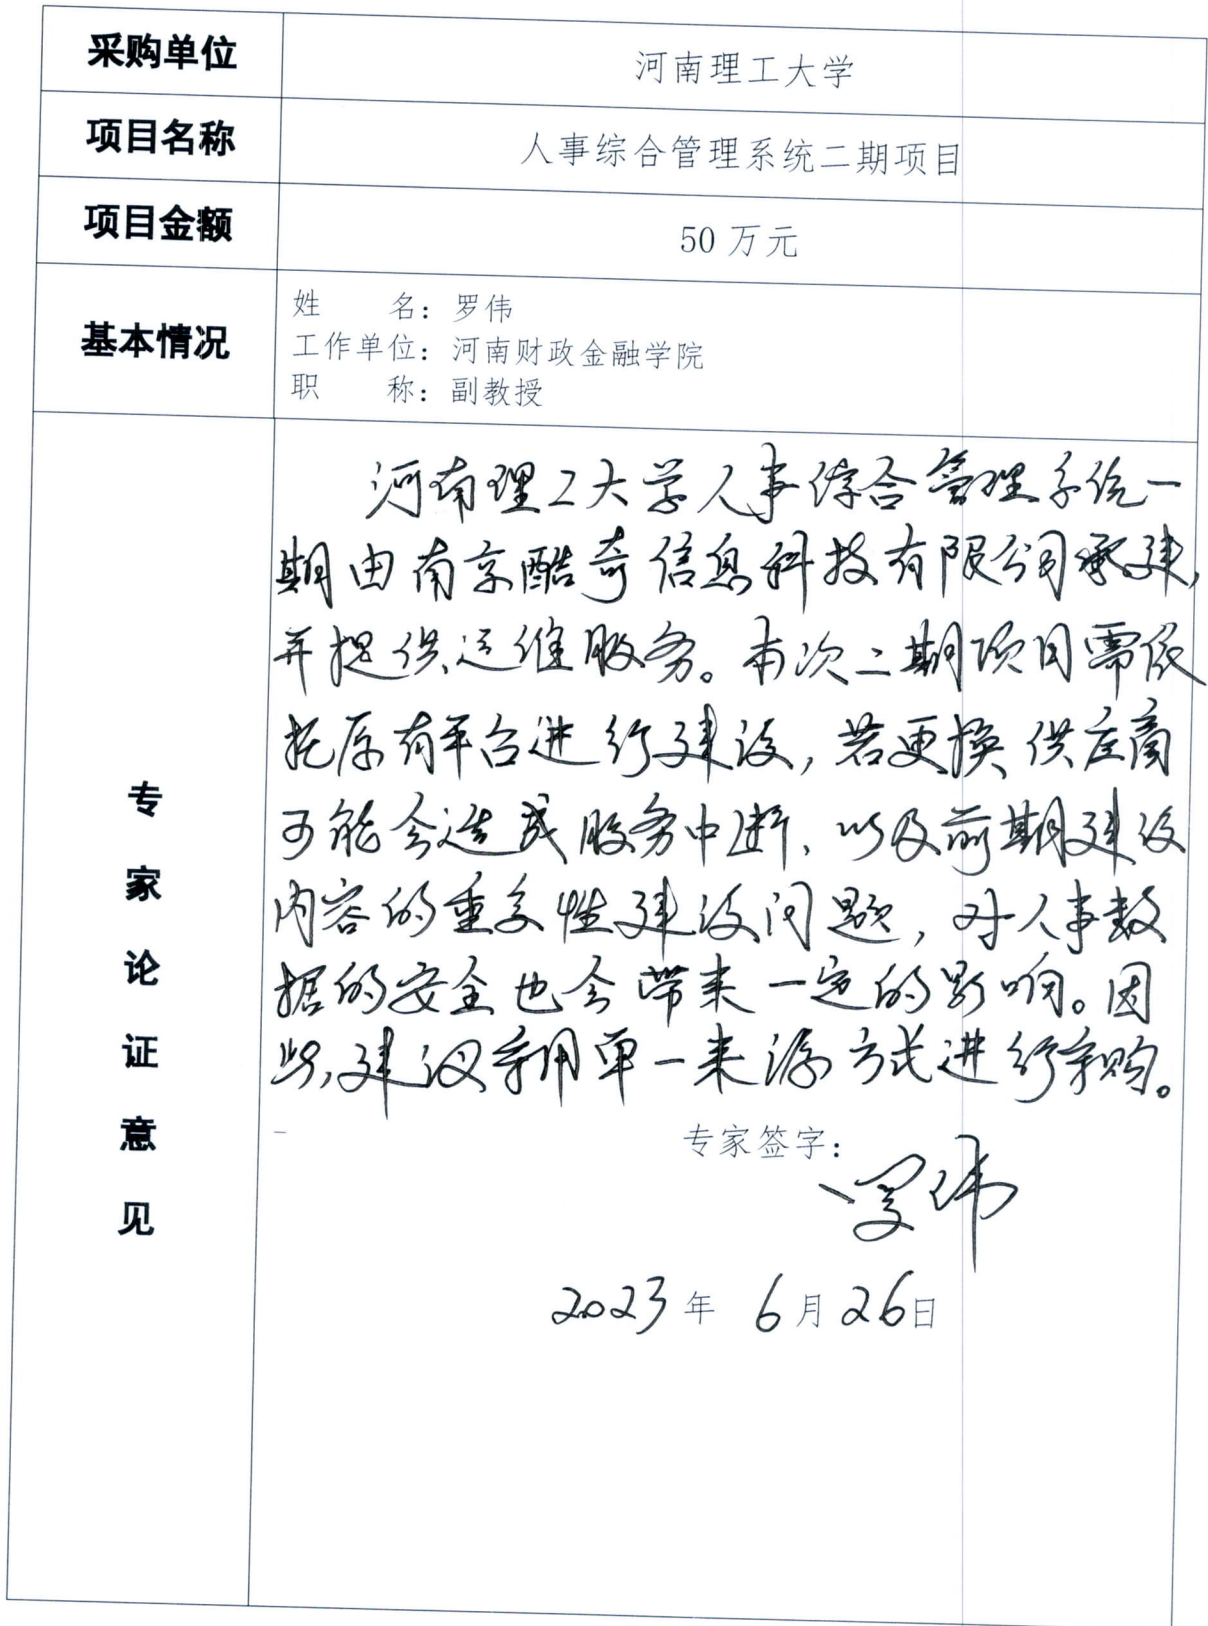 采购单位 河南理工大学
项目名称 人事综合管理系统二期项目
项目金额 50万元
基本情况
姓 名：罗伟
工作单位：河南财政金融学院
职 称：副教授
专家论证意见
河南理工大学人事综合管理系统一
期由南京酷奇信息科技有限公司承建，
并提供运维服务。本次二期项目需依
托原有平台进行建设，若更换供应商
可能会造成服务中断，以及前期建设
内容的重复性建设问题，对人事数
据的安全也会带来一定的影响。因
此，建议采用单一来源方式进行采购。
专家签字：
罗伟
2023年 6月26日